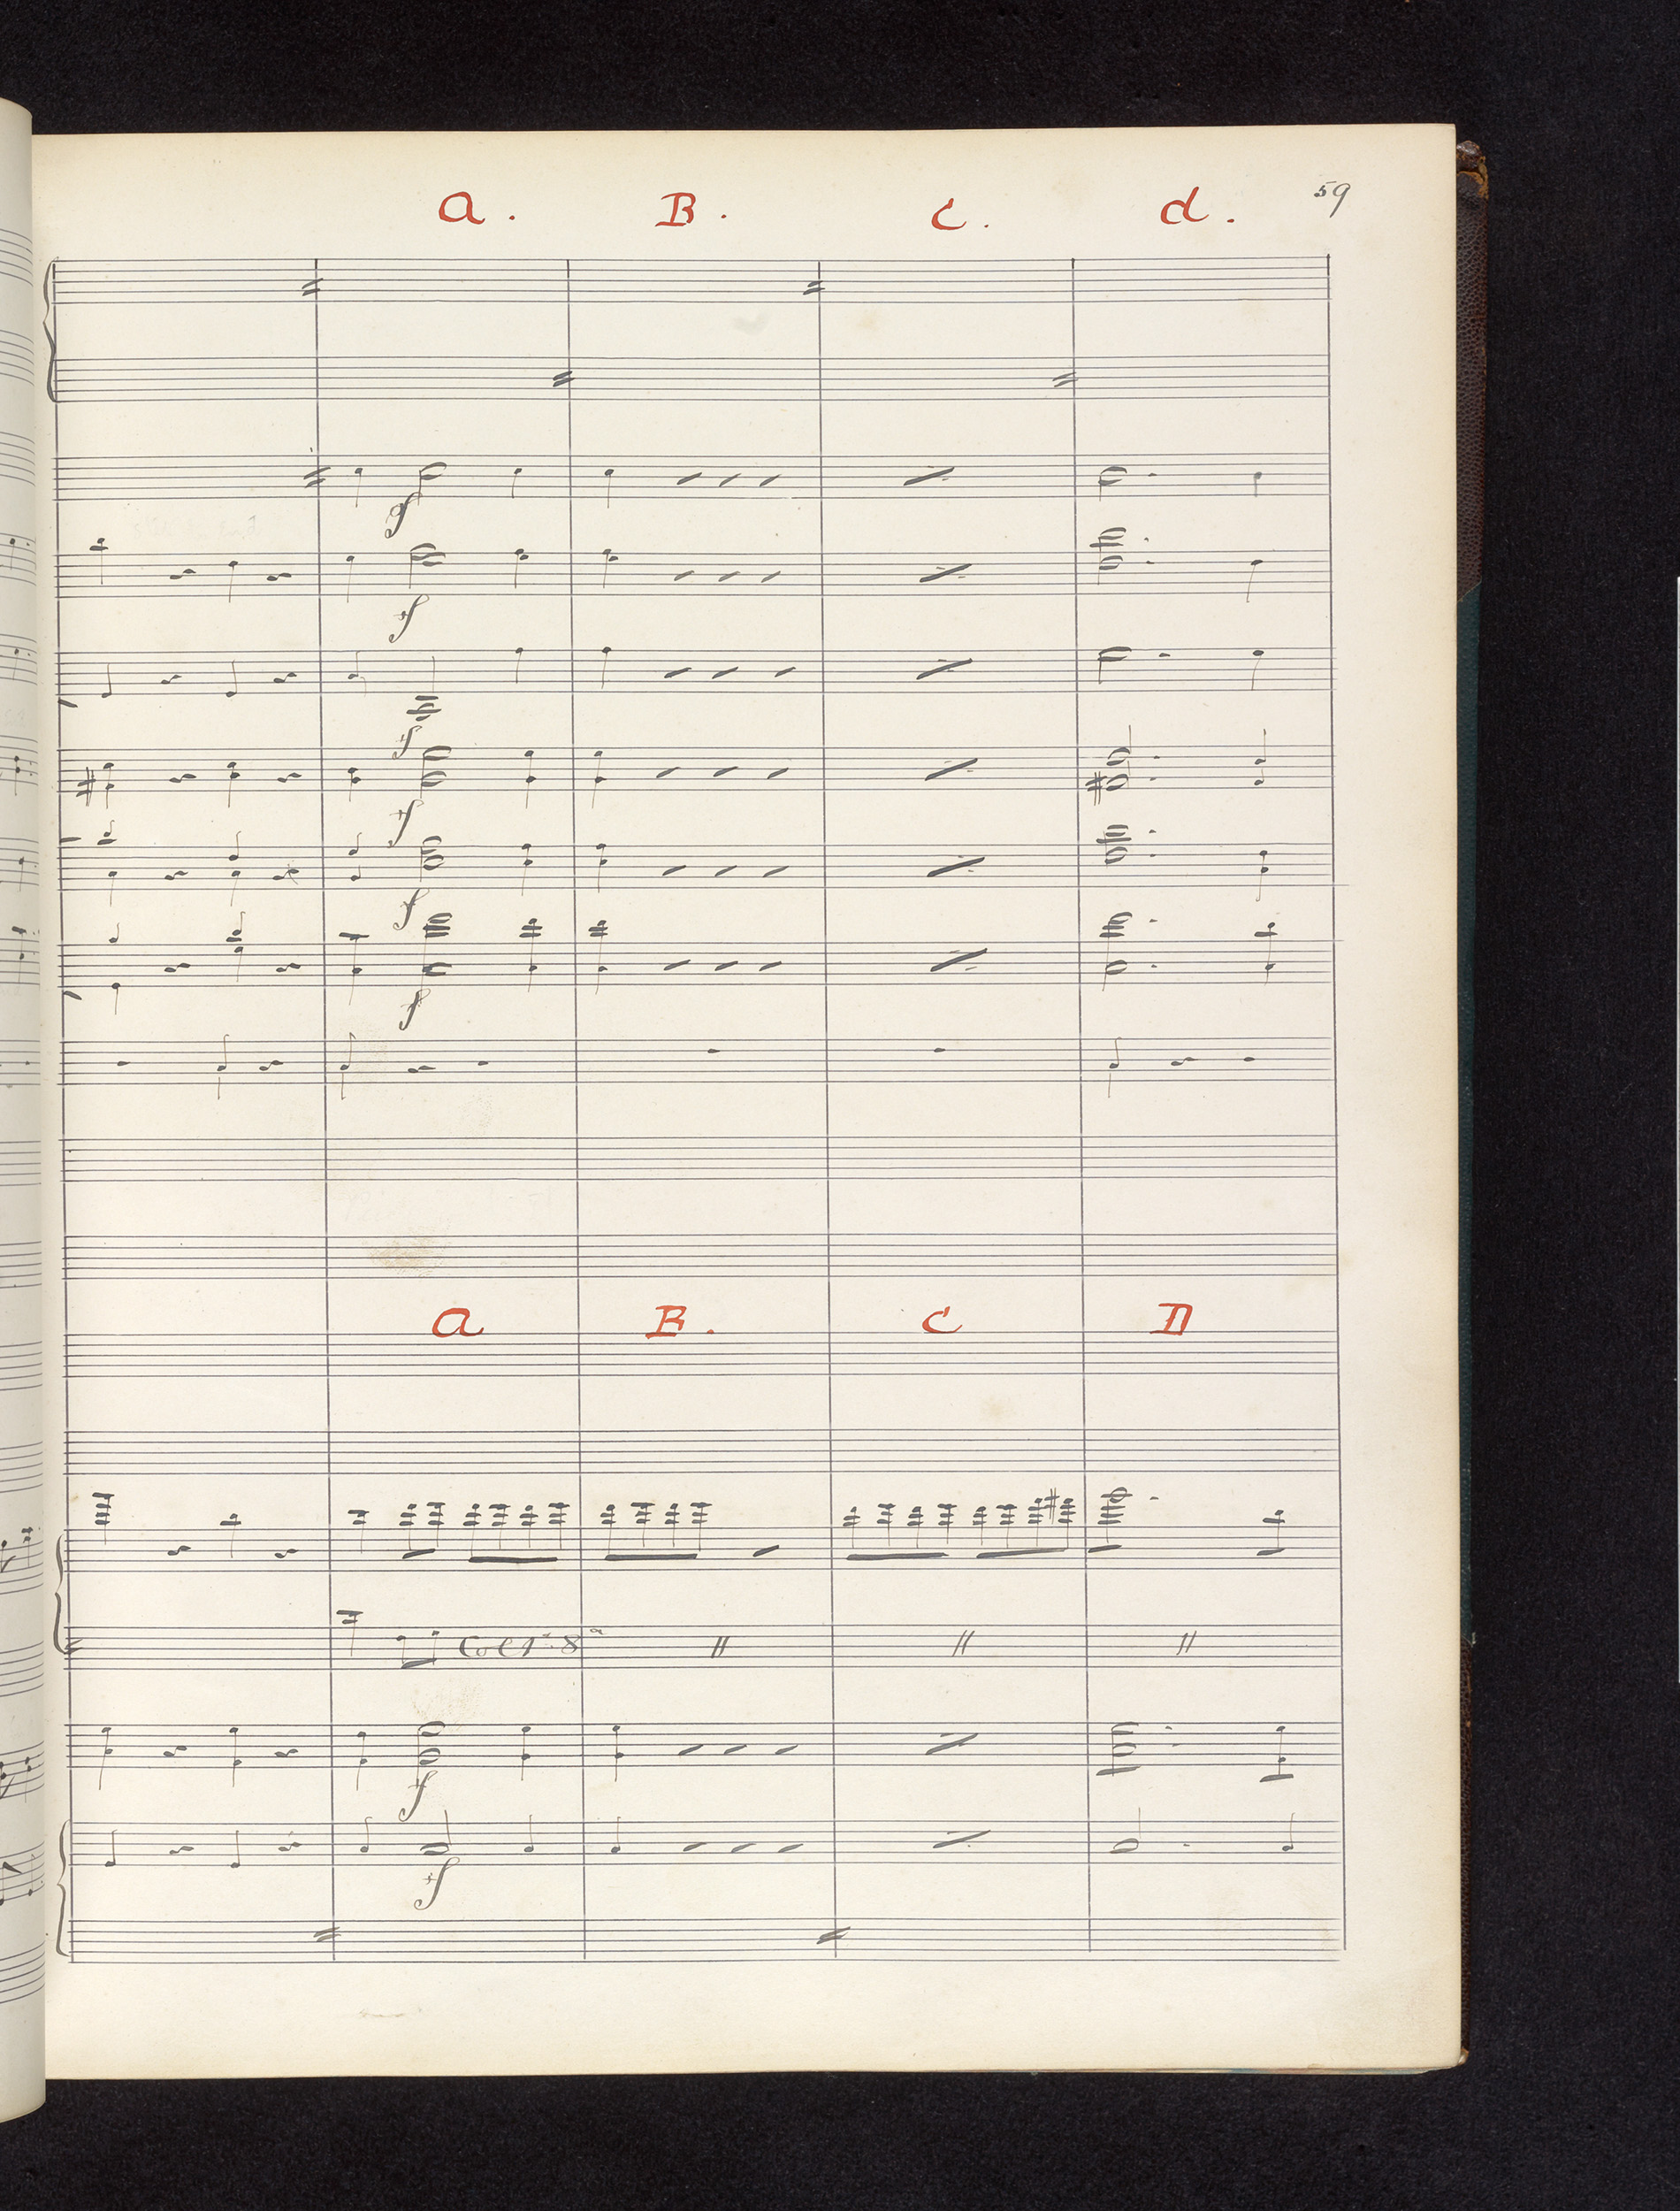 a. B. c. d. 59
f
f
f
f
f
f
a B. c D
Col 1º 8ª
f
f